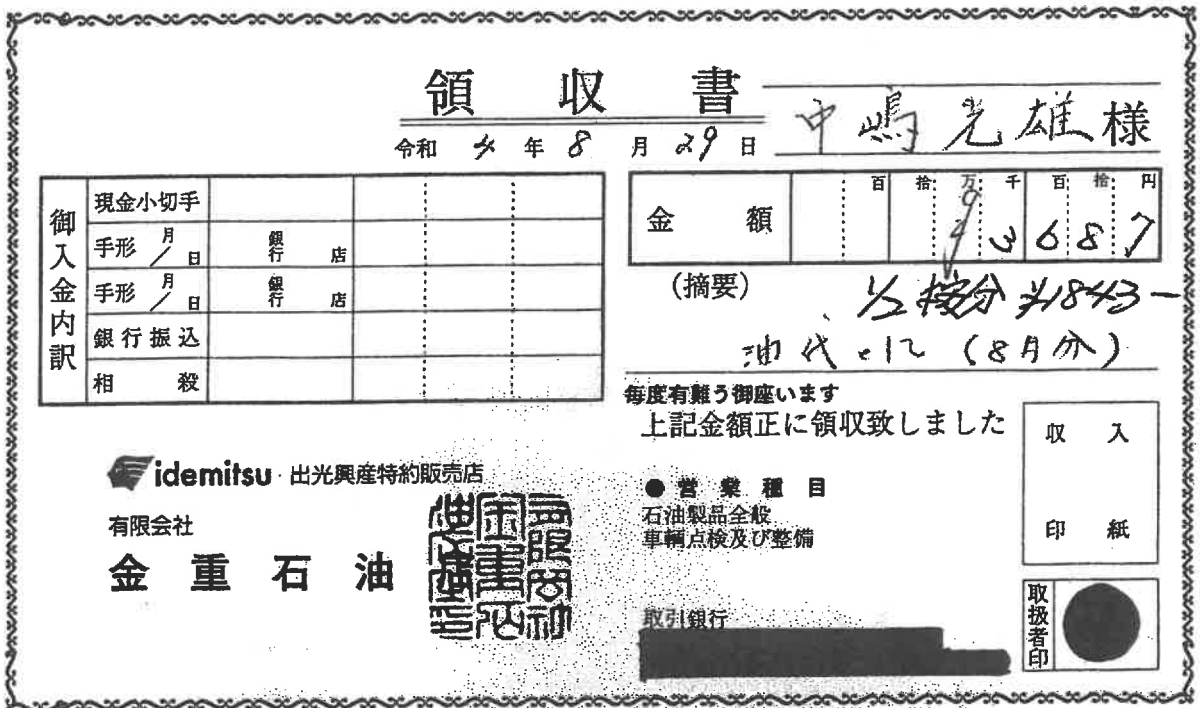 領収書
中嶋光雄様
令和4年8月29日
御入金内訳
現金小切手
手形 月/日 銀行 店
手形 月/日 銀行 店
銀行振込
相殺
金額 百 拾 万 千 百 拾 円
3687
(摘要)
1/2 按分 ¥1843-
油代 (8月分)
毎度有難う御座います
上記金額正に領収致しました
収入印紙
idemitsu 出光興産特約販売店
有限会社
金重石油
●営業種目
石油製品全般
車輌点検及び整備
取引銀行
取扱者印